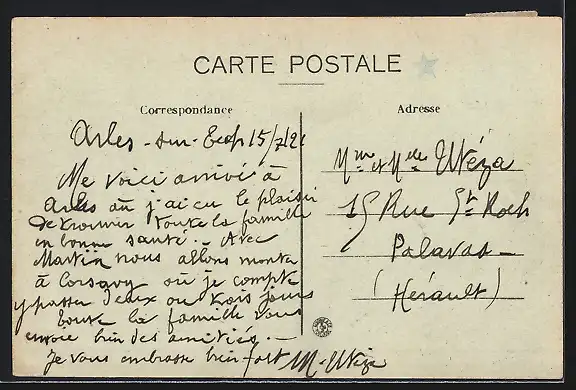 CARTE POSTALE
Correspondance
Arles-sur-Tech 15/7/21
Me voici arrivé à
Arles où j'ai eu le plaisir
de trouver toute la famille
en bonne santé. - Avec
Martin nous allons monter
à Corsavy où je compte
y passer deux ou trois jours
Toute la famille vous
envoie bien des amitiés. -
Je vous embrasse bien fort M. Utéza
Adresse
Mme et Melle Utéza
15 Rue St Roch
Palavas -
(Hérault)